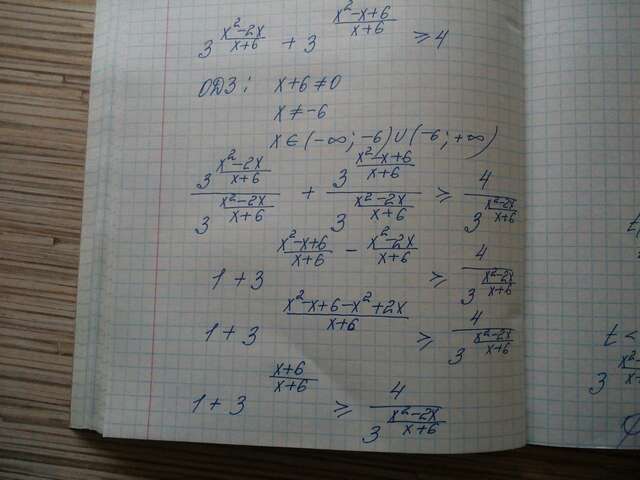 3^((x²-2x)/(x+6)) + 3^((x²-x+6)/(x+6)) ⩾ 4
ОДЗ: x+6 ≠ 0
x ≠ -6
x ∈ (-∞; -6) ∪ (-6; +∞)
3^((x²-2x)/(x+6)) / 3^((x²-2x)/(x+6)) + 3^((x²-x+6)/(x+6)) / 3^((x²-2x)/(x+6)) ⩾ 4 / 3^((x²-2x)/(x+6))
1 + 3^((x²-x+6)/(x+6) - (x²-2x)/(x+6)) ⩾ 4 / 3^((x²-2x)/(x+6))
1 + 3^((x²-x+6-x²+2x)/(x+6)) ⩾ 4 / 3^((x²-2x)/(x+6))
1 + 3^((x+6)/(x+6)) ⩾ 4 / 3^((x²-2x)/(x+6))
t <